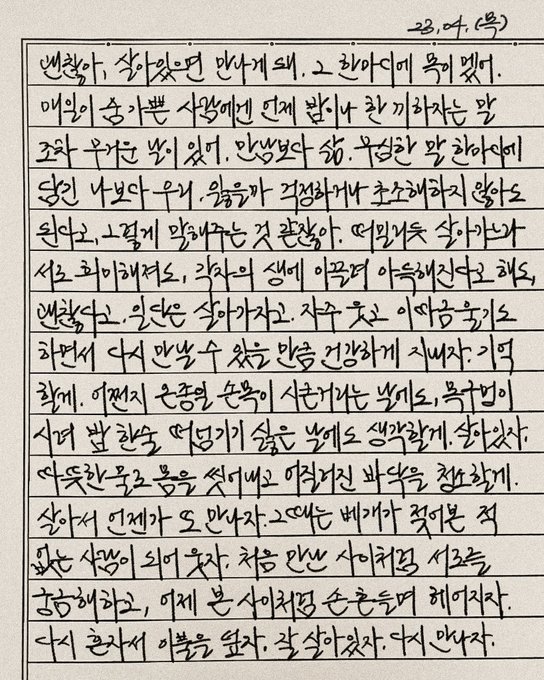 23.04.(목)
괜찮아, 살아있으면 만나게 돼. 그 한마디에 목이 멨어.
매일이 숨 가쁜 사람에겐 언제 밥이나 한 끼하자는 말
조차 무거운 날이 있어. 만남보다 삶. 무심한 말 한마디에
담긴 나보다 우리. 잃을까 걱정하거나 초조해하지 않아도
된다고, 그렇게 말해주는 것 괜찮아. 떠밀리듯 살아가느라
서로 희미해져도, 각자의 생에 이끌려 아득해진다고 해도,
괜찮다고. 일단은 살아가자고. 자주 웃고 이따금 울기도
하면서 다시 만날 수 있을 만큼 건강하게 지내자. 기억
할게. 어쩐지 온종일 손목이 시큰거리는 날에도, 목구멍이
시려 밥 한술 떠넘기기 싫은 날에도 생각할게. 살아있자.
따뜻한 물로 몸을 씻어내고 어질러진 바닥을 청소할게.
살아서 언젠가 또 만나자. 그때는 베개가 젖어본 적
없는 사람이 되어 웃자. 처음 만난 사이처럼 서로를
궁금해하고, 어제 본 사이처럼 손 흔들며 헤어지자.
다시 혼자서 이불을 덮자. 잘 살아있자. 다시 만나자.